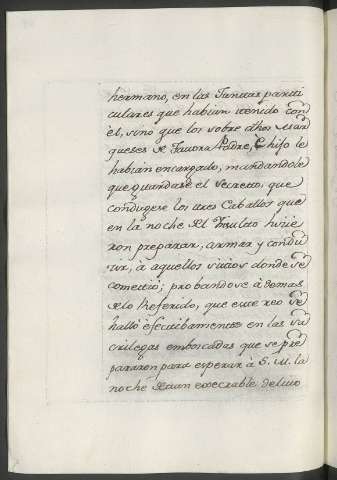 hermano, en las Juntas parti
culares que habian tenido con
el, sino que los sobre dhos Mar
queses de Tavora Padre, é hijo le
habian encargado, mandandole
que guardase el secreto, que
condugese los tres Caballos que
en la noche del Insulto hicie
ron preparar, armar y condu
cir, à aquellos sitios donde se
cometió; probandose àdemas
delo Referido, que este reo se
halló efectibamente en las sa
crilegas emboscadas que se pre
pararon para esperar à S. M. la
noche de tan execrable delito